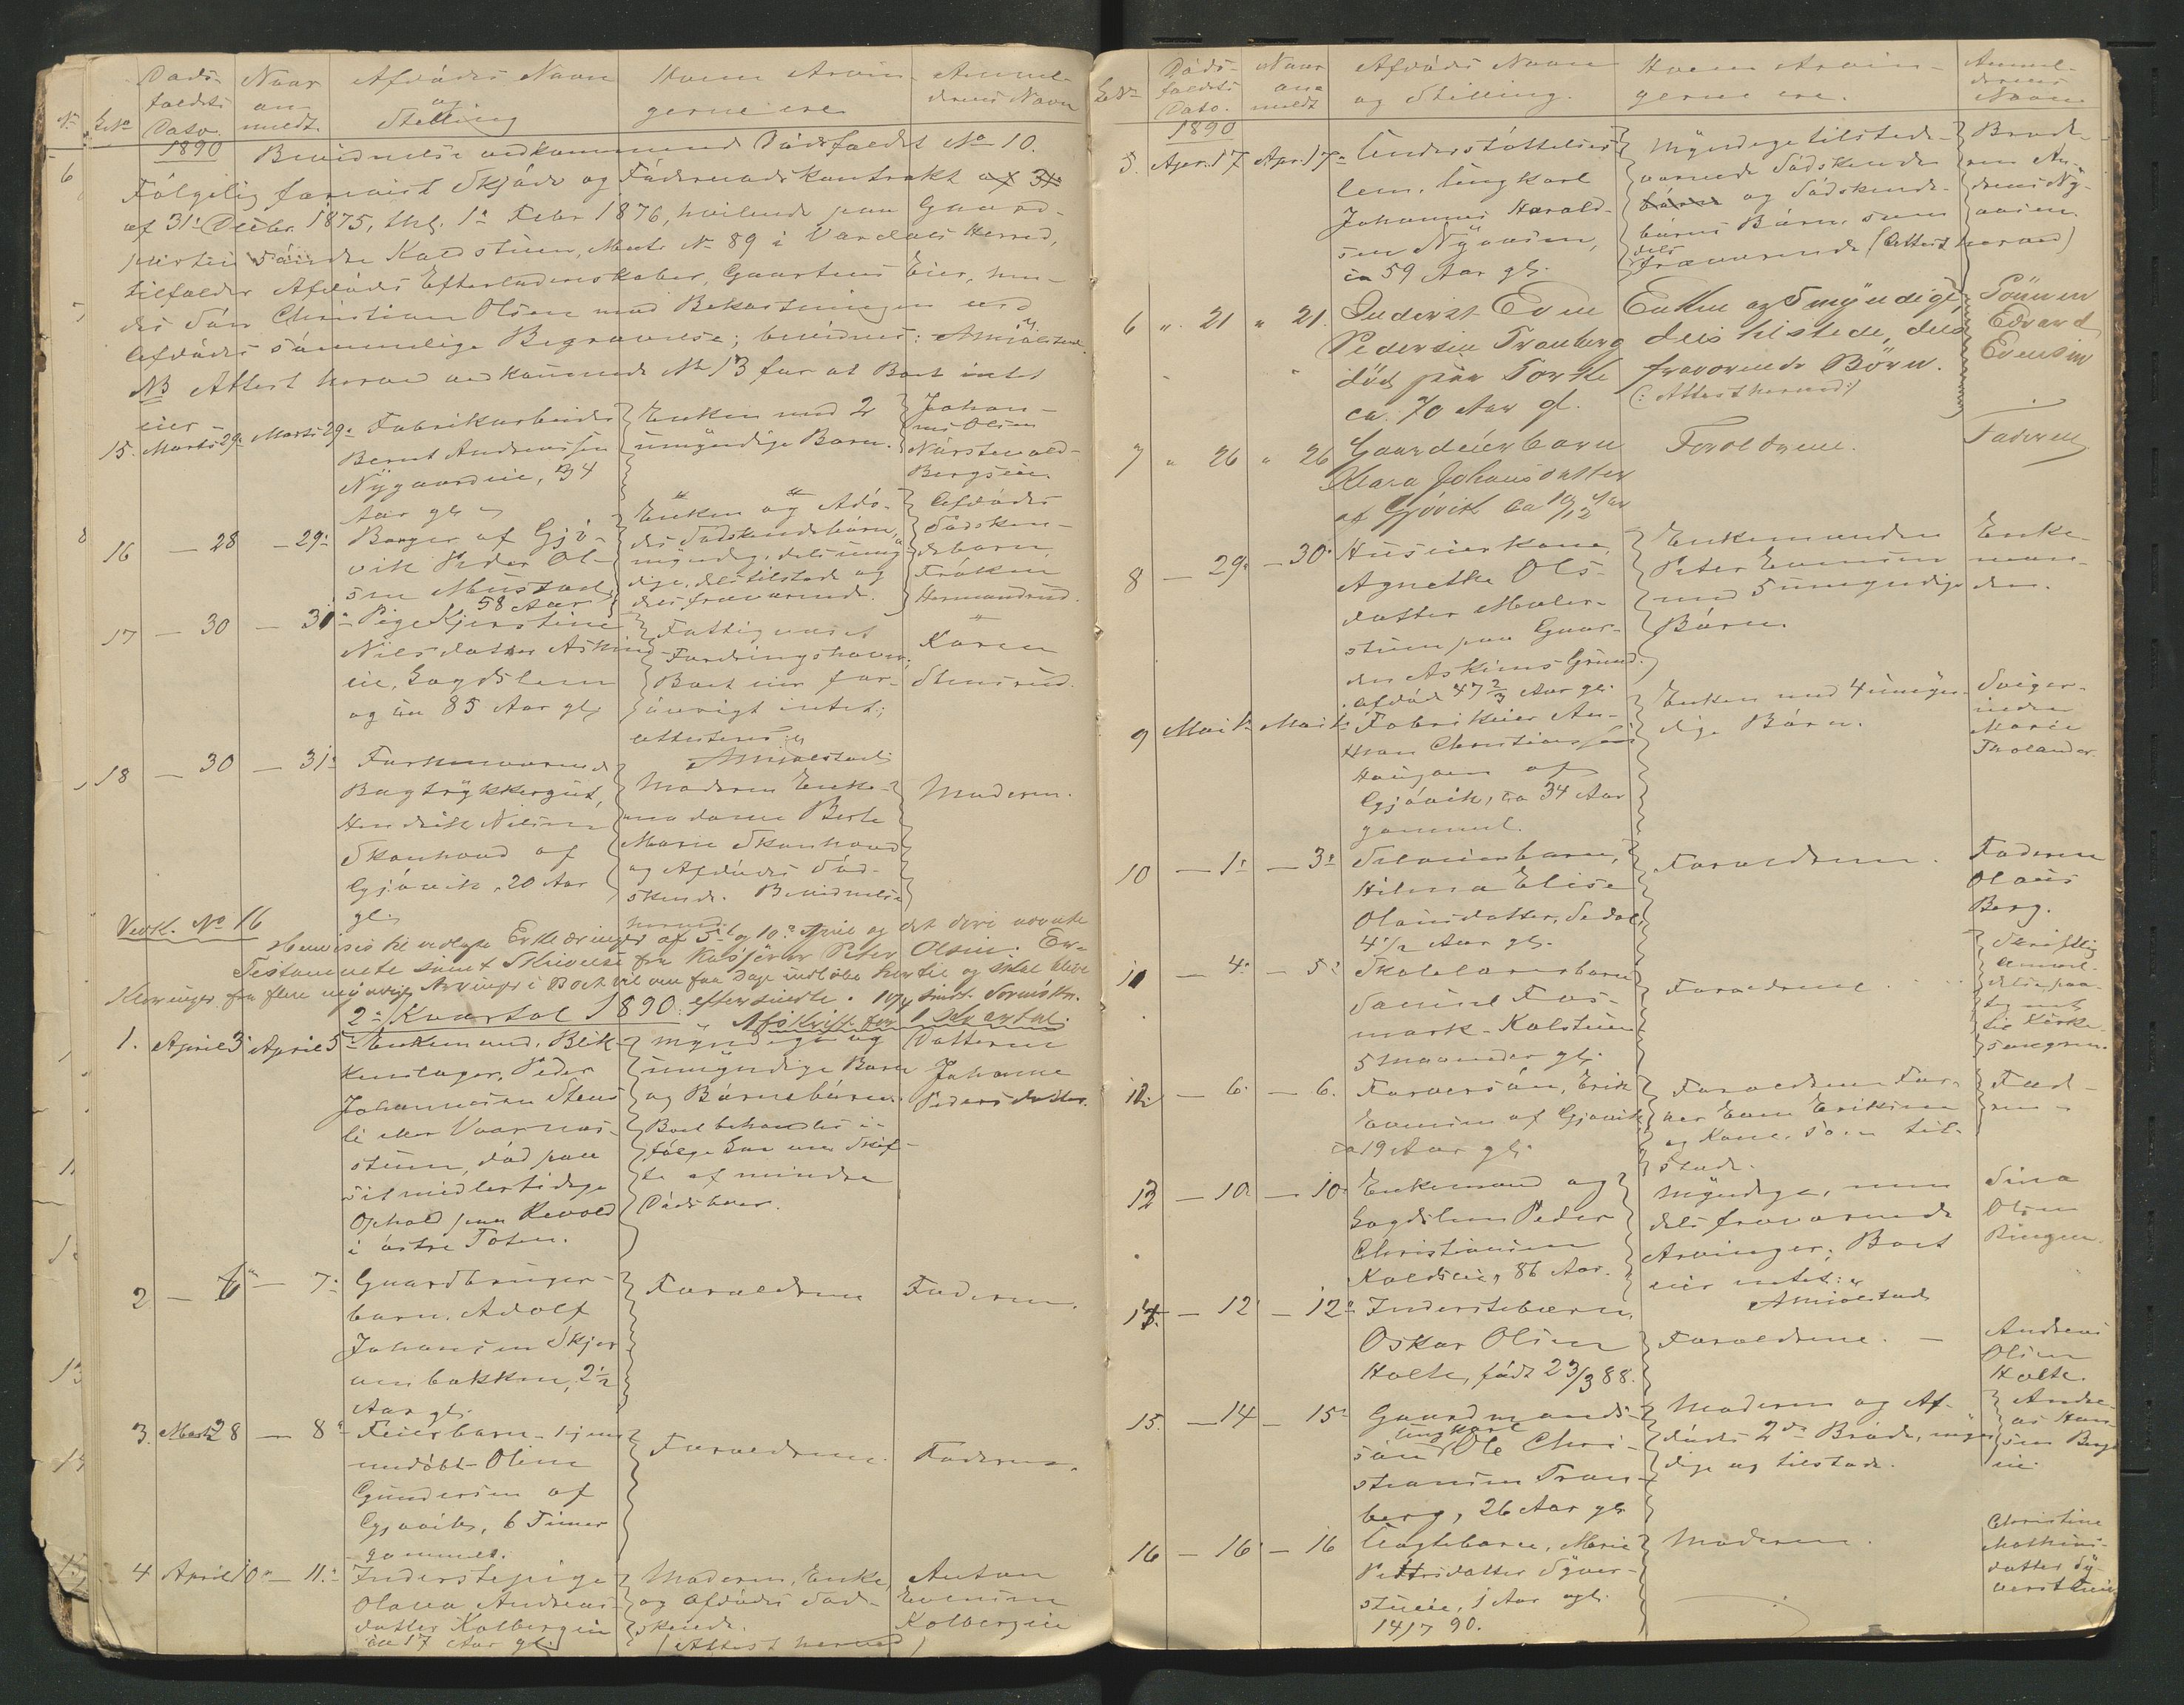 Døds-
faldets
Dato.
Naar
an-
meldt.
Afdødes Navn
og
Stilling
Hvem Arvin-
gerne ere
Anmel-
derens Navn
1890
Bevidnelse vedkommende Dødsfaldet No 10.
Følgelig forevist Skjøde og Føderaadskontrakt af 31te
af 31te Decbr. 1875, thgl. 1te Febr 1876, hvilende paa Gaard-
parten søndre Koldstuen, Matr. No 89 i Vardals Herred,
tilfalder Afdødes Efterladenskaber, Gaardens Eier, hen-
des Søn Christian Olsen mod Bekostningen ved
Afdødes sømmelige Begravelse; bevidnes: AMjølstad
NB Attest herved vedkommende No 13 for at Boet intet
eier
15. Marts 29. Marts 29. Fabrikarbeider
Bernt Andreassen
Nygaardeie, 34
Aar gl.
Enken med 2
umyndige Børn.
Johan-
nes Olsen
Bergseie
16 — 28 — 29. Borger af Gjø-
vik Peder Ol-
sen Mustad
58 Aar
Enken og Afdø-
des Sødskendebørn,
myndig, dels umyn-
dige, dels tilstede og
dels fraværende.
Afdødes
Sødsken-
debarn,
Frøken
Hermandrud.
17 — 30 — 31. Pige Kjerstine
Nilsdatter Askim-
eie, Lægdslem
og ca 85 Aar gl.
Fattigvæsenet
Fordringshaver;
Boet eier for-
øvrigt intet;
attesteres
AMjølstad
Karen
Stensrud.
18 — 30 — 31. Forhenværende
Bogtrykkergut,
Hendrik Nilsen
Skonhovd af
Gjøvik, 20 Aar
gl.
Moderen Enke-
madame Berte
Marie Skonhovd
og Afdødes Sød-
skende. Bevidnelse
herved.
Moderen.
Vedk. No 16
Henvises til vedlagte Erklæringer af 5te og 10de April og det deri nævnte
Testamente samt Skrivelse fra Kasserer Peter Olsen. Er-
klæringer fra flere myndige Arvinger i Boet vil om faa Dage indløbe hertil og skal blive
eftersendte.
2det Kvartal 1890.
Afskrift for 1 Kvartal
1. April 3 April 5 Enkemand, Blik-
kenslager, Peder
Johannesen Stens-
li eller Vaarnæs-
stuen, død paa
sit midlertidige
Ophold paa Kevold
i østre Toten.
Myndige og
umyndige Børn
og Børnebørn.
Boet behandles i-
følge Lov om Skif-
te af mindre
Dødsboer.
Datteren
Johanne
Pedersdatter.
2 — 6 — 7. Gaardbruger-
barn, Adolf
Johansen Skjer-
venbakken, 2½
Aar gl.
Forældrene
Faderen.
3. Marts 28 — 8. Feierbarn, hjem-
medøbt Oline
Gundersen af
Gjøvik, 6 Timer
gammel.
Forældrene.
Faderen.
4 April 10. — 11. Inderstepige
Olava Andreas-
datter Kolbergeie
ca 17 Aar gl.
Moderen, Enke,
og Afdødes Sød-
skende.
(Attest herved)
Anton
Evensen
Kolbergeie
Døds-
faldets
Dato.
Naar
an-
meldt
Afdødes Navn
og Stilling.
Hvem Arvin-
gerne ere.
Anmel-
derens
Navn
1890
5. Apr. 17 Apr. 17. Understøttelses-
lem, Ungkarl
Johannes Harald-
sen Nyøvsen,
ca 59 Aar gl.
Myndige tilstede-
værende Sødskende
børn og Sødskende-
børns Børn, som
dels
fraværende (Attest herved)
Brode-
ren An-
dreas Ny-
øvsen.
6 „ 21 „ 21. Inderst Even
Pedersen Tranberg
død paa Torke
ca. 70 Aar gl.
Enken og 5 myndige,
dels tilstede, dels
fraværende Børn.
(: Attest herved:)
Sønnen
Edvard
Evensen
7 „ 26 „ 26 Gaardeierbarn
Klara Johansdatter
af Gjøvik ca 10/12 Aar
Forældrene.
Faderen
8 — 29. — 30. Husmerkone,
Agnethe Ols-
datter Maler-
stuen paa Gaar-
den Askims Grund.
afdød 47 2/3 Aar gl.
Enkemanden
Peter Evensen
med 5 umyndige
Børn.
Enke-
man-
den.
9 Mai 1. Mai 1. Fabrikeier An-
thon Christiansen
Haugen af
Gjøvik, ca 34 Aar
gammel.
Enken med 4 umyn-
dige Børn.
Sviger-
inden
Marie
Tholander.
10 — 1. — 3. Selveierbarn,
Hilma Elise
Olausdatter, Sedal,
4½ Aar gl.
Forældrene.
Faderen
Olaus
Berg.
11 — 4. — 5. Skolelærerbarn
Samuel Fos-
mark-Kolstuen
5 Maaneder gl.
Forældrene.
Skriftlig
Anmel-
delse paa-
tegnet
til Kirke-
sangeren.
12 — 6. — 6. Farversøn, Erik
Evensen af Gjøvik
ca 19 Aar gl.
Forældrene Far-
ver Even Eriksen
og Kone, som til-
stede.
Fade-
ren
13 — 10 — 10. Enkemand og
Lægdslem Peder
Christiansen
Koldseie, 86 Aar.
Myndige, men
dels fraværende
Arvinger; Boet
eier intet:
AMjølstad
Sina
Olsen
Ringen.
14. — 12 — 12. Inderstebarn,
Oskar Olsen
Holte, født 23/3 88.
Forældrene. —
Andreas
Olsen
Holte.
15. — 14 — 15. Gaardmands-
Ungkarl
søn Ole Chri-
stiansen Tran-
berg, 26 Aar gl.
Moderen og Af-
døde 2de Brødre, myn-
dige og tilstede.
Andre-
as Han-
sen Berg-
eie.
16 — 16 — 16 Uægtebarn, Marie
Pettersdatter Syver-
stueie, 1 Aar gl.
14/7 90.
Moderen.
Christine
Mathias-
datter Sy-
verstueie